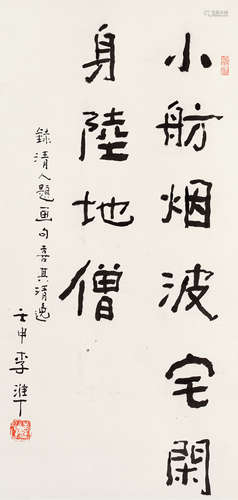 小舫烟波宅閑
身陸地僧
錄清人題画句喜其清逸
壬申李